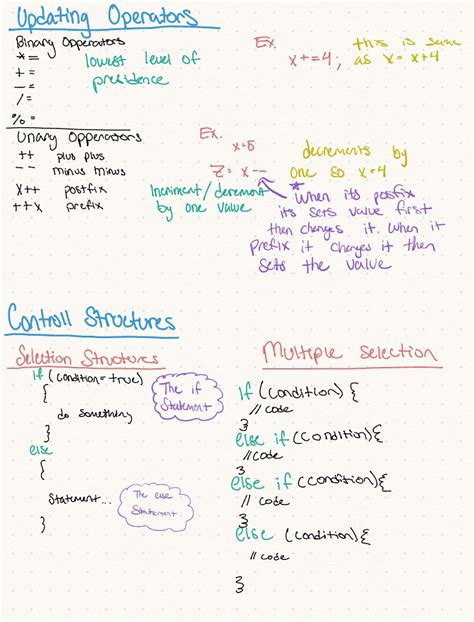 Updating Operators
Binary Opperators
*=
+=
-=
/=
%=
lowest level of
presidence
Ex.
x+=4;
this is same
as x = x+4
Unary Opperators
++ plus plus
-- minus minus
x++ postfix
++x prefix
Ex.
x=5
z = x--
decrements by
one so x=4
Incriment/decrement
by one value
*When its postfix
its sets value first
then changes it. when it
prefix it changes it then
sets the value
Controll Structures
Selection Structures
if (condition = true)
{
do something
}
else
{
Statement...
}
The if
Statement
The else
Statement
Multiple Selection
if (condition) {
// code
}
else if (condition){
//code
}
else if (condition){
// code
}
else (condition){
// code
}